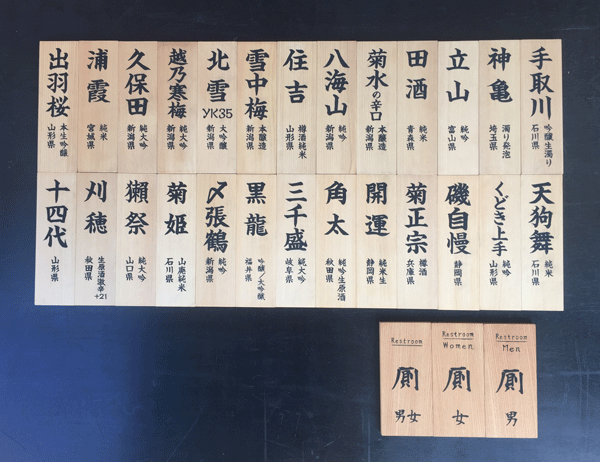 手取川
吟醸生濁り
石川県
神亀
濁り発泡
埼玉県
立山
純吟
富山県
田酒
純米
青森県
菊水の辛口
本醸造
新潟県
八海山
純吟
新潟県
住吉
樽酒純米
山形県
雪中梅
本醸造
新潟県
北雪
YK35
大吟醸
新潟県
越乃寒梅
純大吟
新潟県
久保田
純大吟
新潟県
浦霞
純米
宮城県
出羽桜
本生吟醸
山形県
天狗舞
純米
石川県
くどき上手
純吟
山形県
磯自慢
静岡県
菊正宗
樽酒
兵庫県
開運
純米生
静岡県
角太
純吟生原酒
秋田県
三千盛
純大吟
岐阜県
黒龍
吟醸/大吟醸
福井県
〆張鶴
純吟
新潟県
菊姫
山廃純米
石川県
獺祭
純大吟
山口県
刈穂
生原酒激辛
+21
秋田県
十四代
山形県
Restroom
厠
男女
Restroom
Women
厠
女
Restroom
Men
厠
男